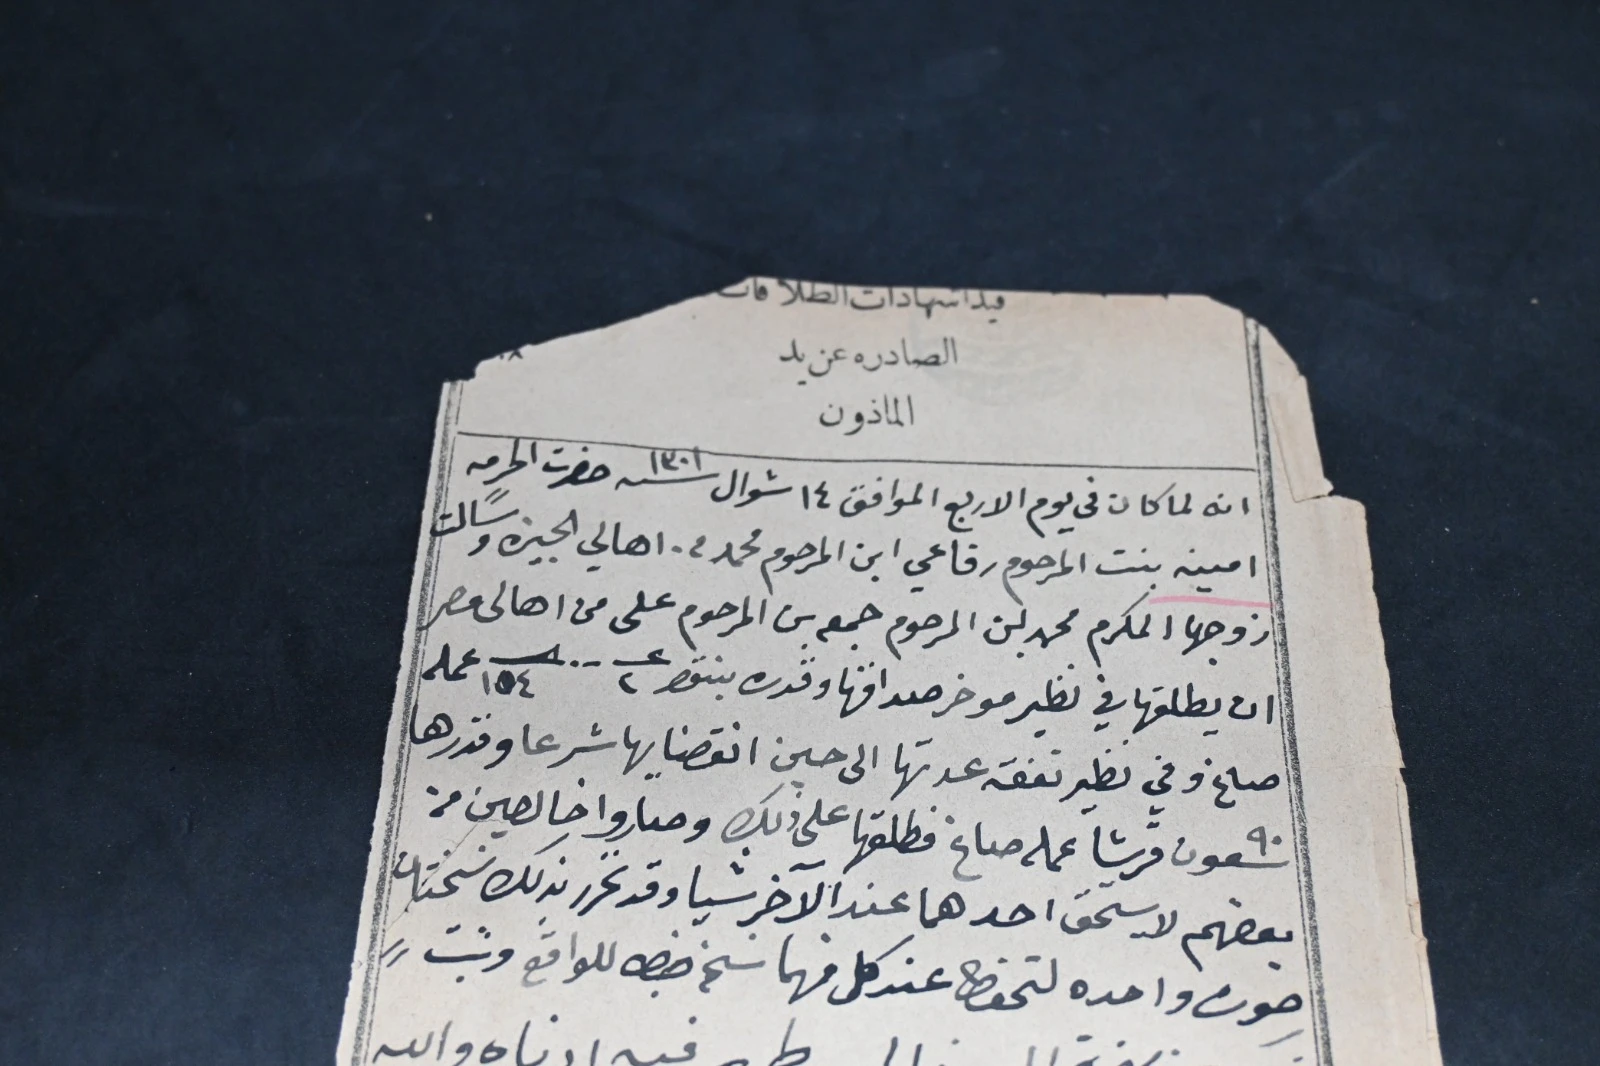 قيد اشهادات الطلاقات
الصادره عن يد
الماذون
انه لما كان في يوم الاربع الموافق ١٤ شوال سنه ١٣٠١ حضرت الحرمه
امينه بنت المرحوم رفاعي ابن المرحوم محمد من اهالي الجيزه وسالت
زوجها المكرم محمد بن المرحوم جمعه بن المرحوم على من اهالى مصر
ان يطلقها في نظير موخر صداقها وقدره ١٥٤ عمله
صاغ وفي نظير نفقه عدتها الى حين انقضايها شرعا وقدرها
٩٠ تسعون قرشا عمله صاغ فطلقها على ذلك وصاروا خالصين من
بعضهم لا يستحق احدهما عند الآخر شيا وقد تحرر بذلك نسختان
صوره واحده لتحفظ عند كل منهما نسخه ضبطه للواقع وثبت
فيه ادناه والله